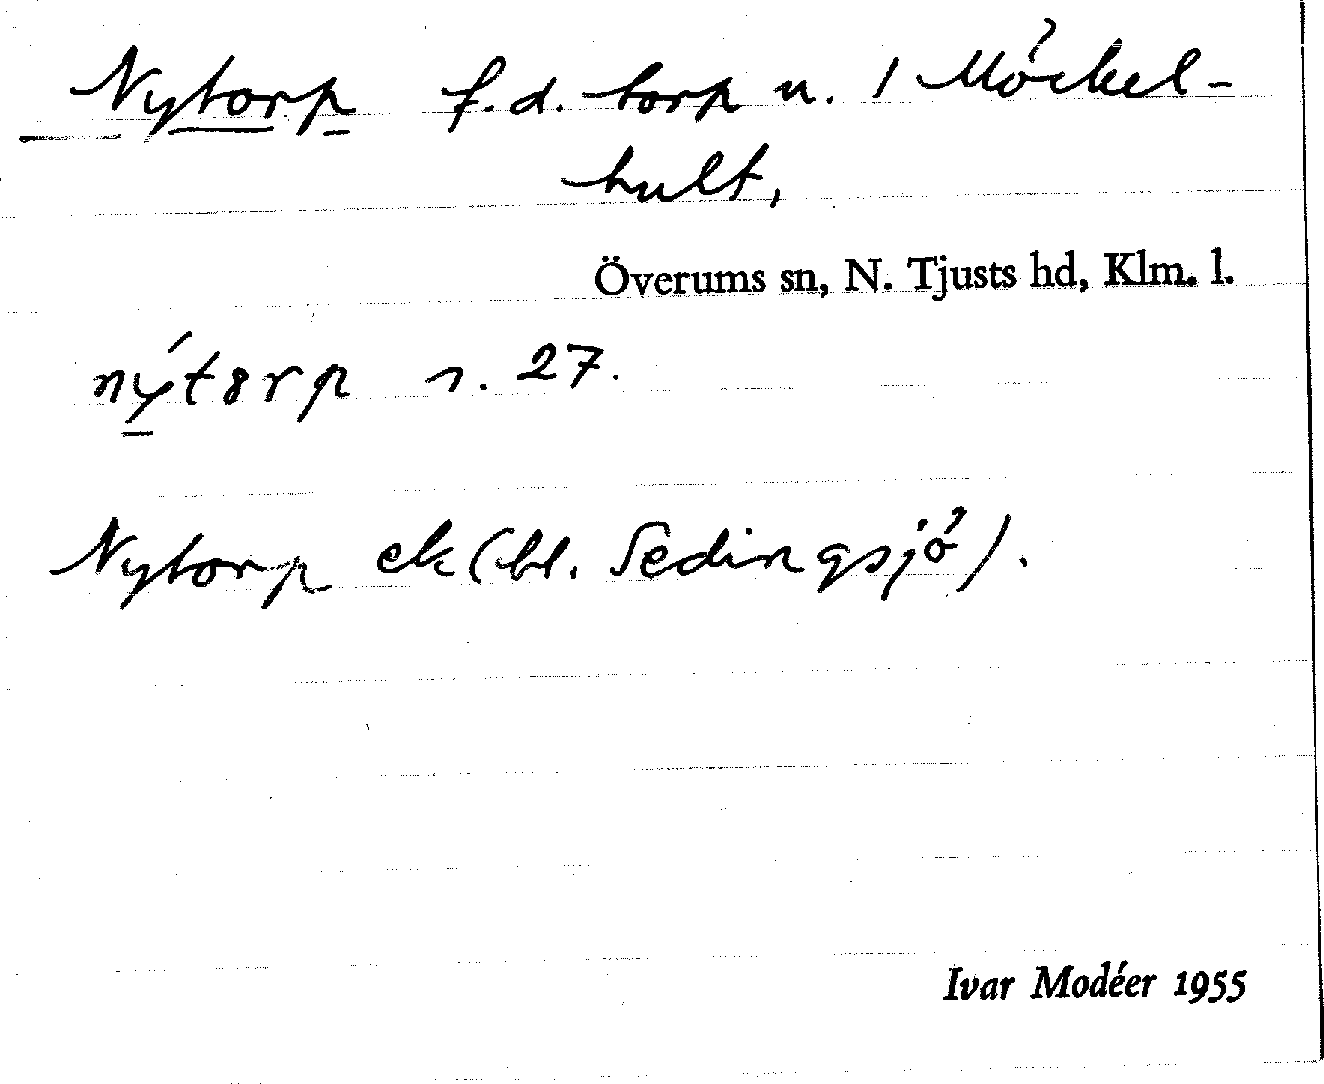 Nytorp f.d. torp u. 1 Möckel-
hult,
Överums sn, N. Tjusts hd, Klm. l.
nýt8rp s. 27.
Nytorp ek (bl. Sedingsjö).
Ivar Modéer 1955